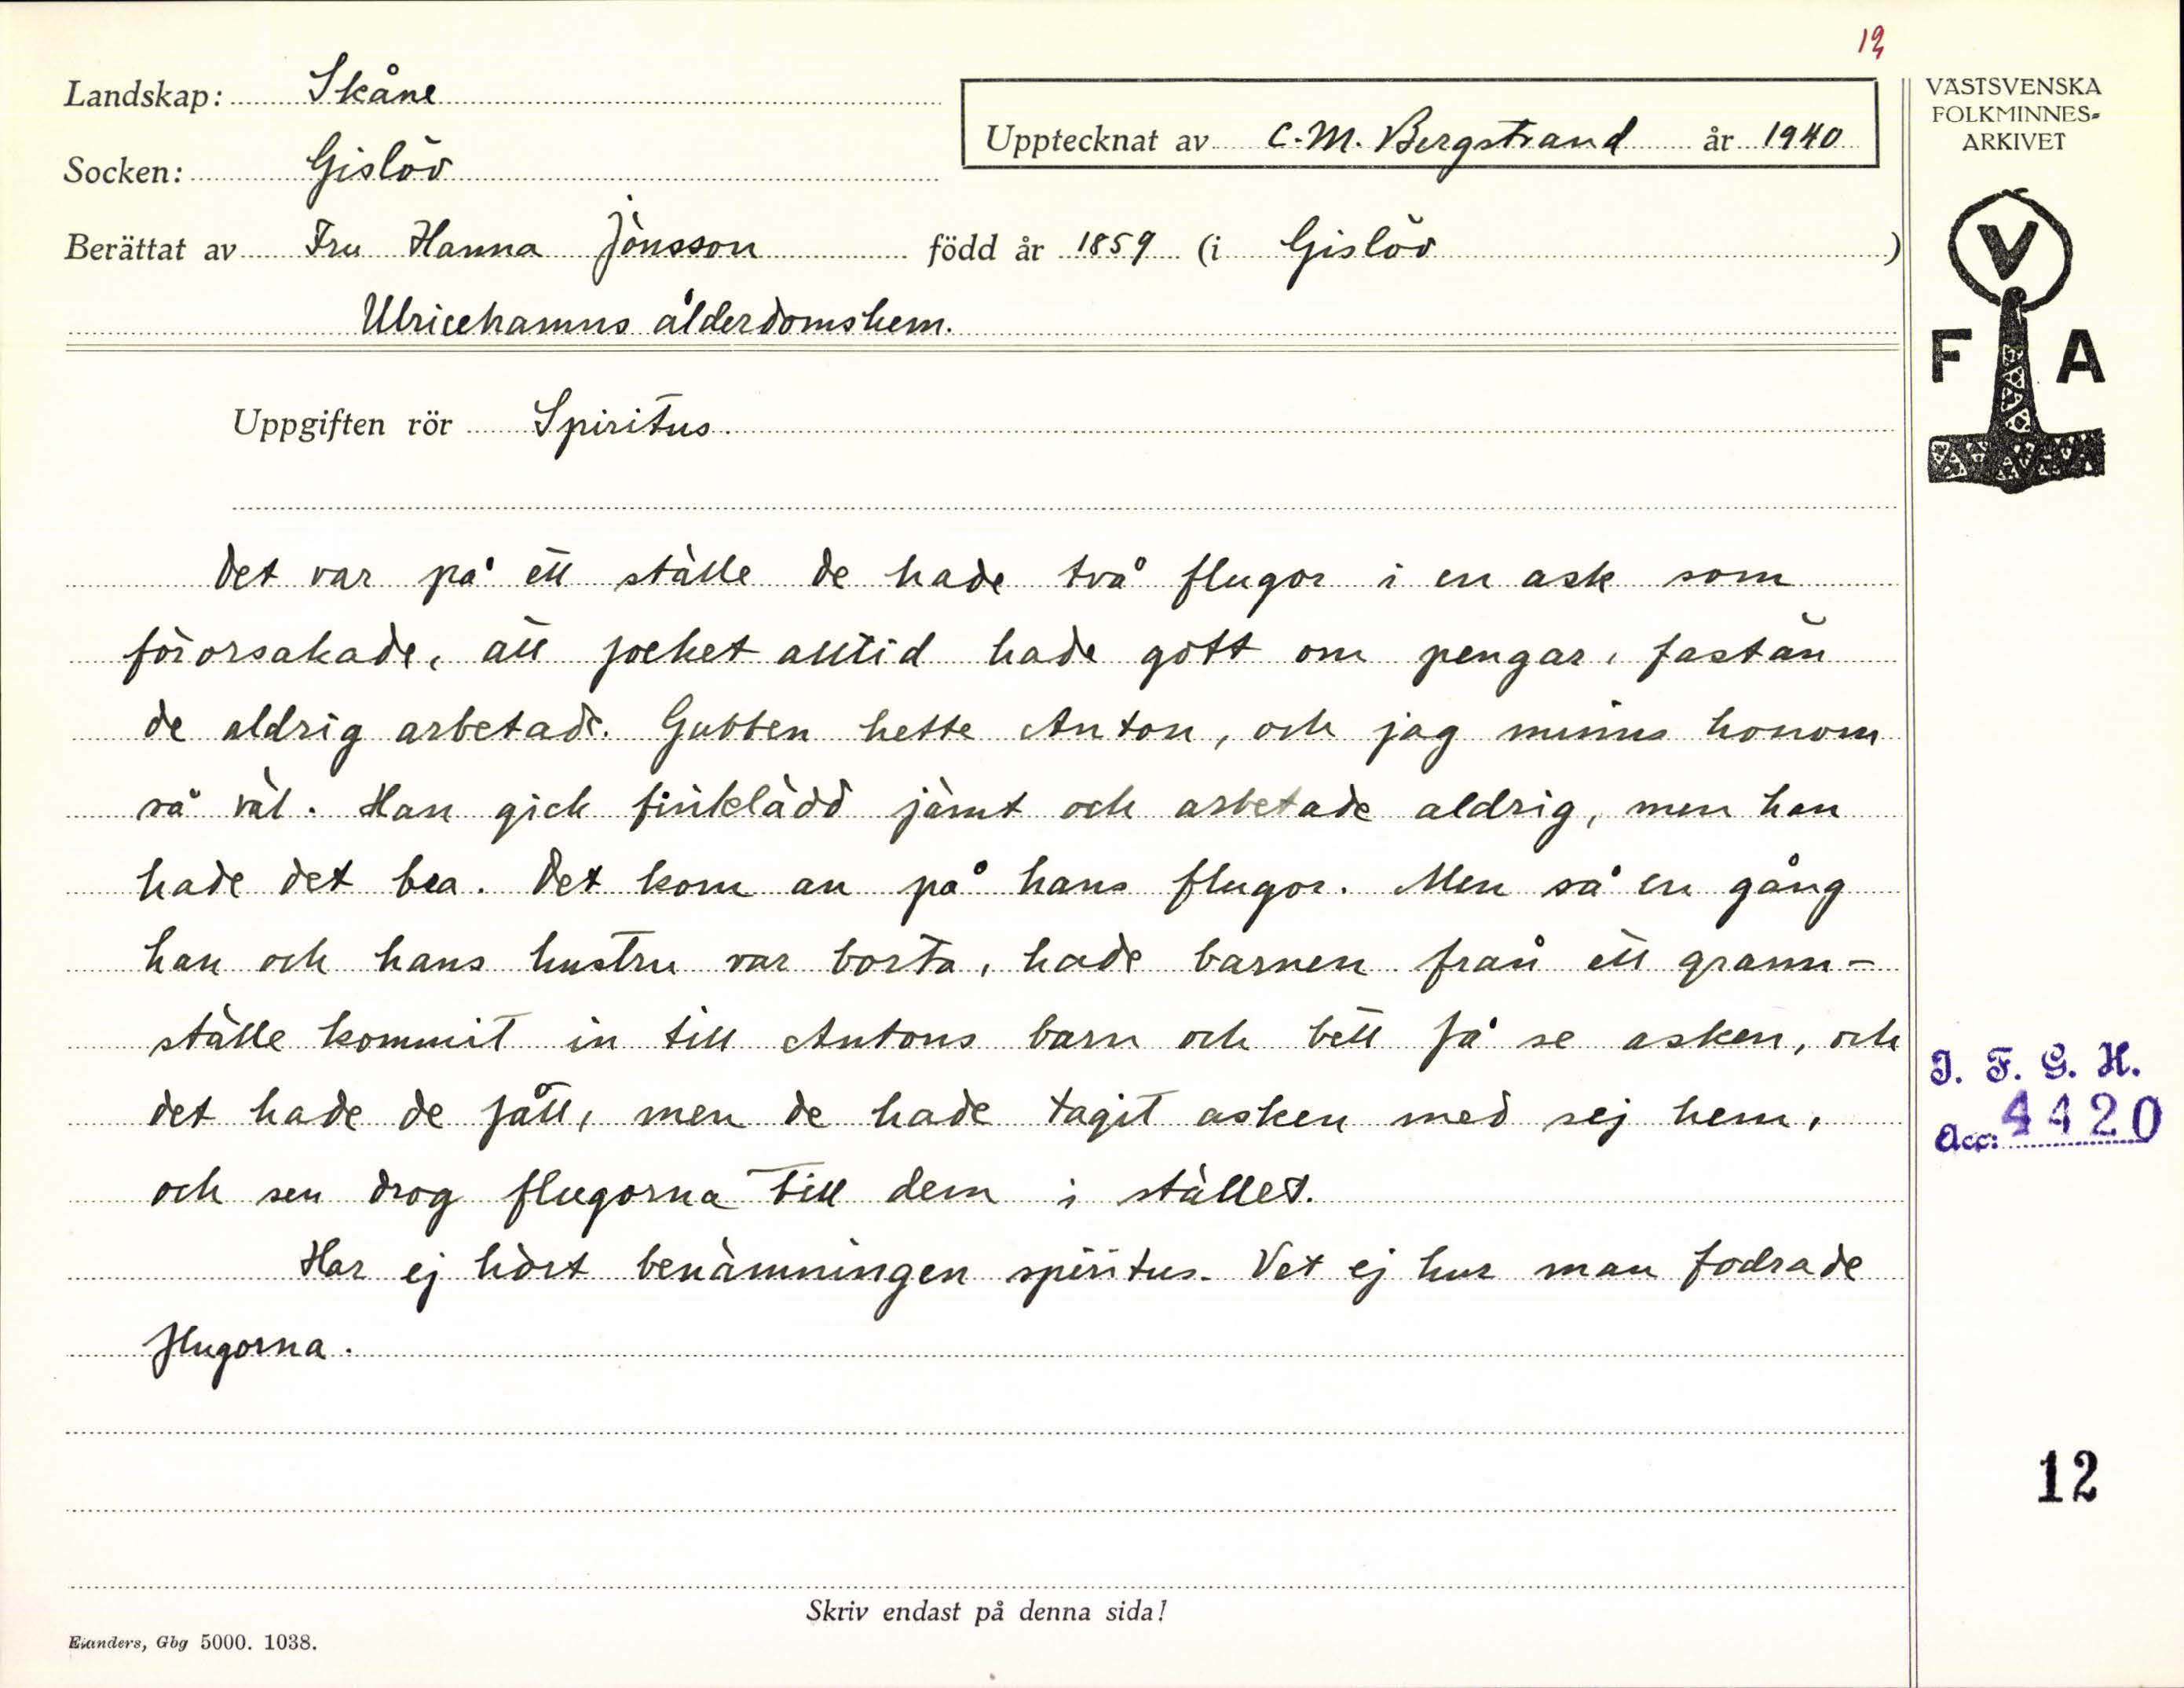 12
Landskap: Skåne
Upptecknat av C. M. Bergstrand år 1940
Socken: Gislöv
Berättat av Fru Hanna Jönsson född år 1859 (i Gislöv)
Ulricehamns ålderdomshem.
Uppgiften rör Spiritus.
Det var på ett ställe de hade två flugor i en ask som
förorsakade, att folket alltid hade gott om pengar, fastän
de aldrig arbetade. Gubben hette Anton, och jag minns honom
så väl. Han gick finklädd jämt och arbetade aldrig, men han
hade det bra. Det kom an på hans flugor. Men så en gång
han och hans hustru var borta, hade barnen från ett grann-
ställe kommit in till Antons barn och bett få se asken, och
det hade de fått, men de hade tagit asken med sej hem,
och sen drog flugorna till dem i stället.
Har ej hört benämningen spiritus. Vet ej hur man fodrade
flugorna.
Skriv endast på denna sida!
Elanders, Gbg 5000. 1038.
VÄSTSVENSKA
FOLKMINNES=
ARKIVET
V
F A
I. F. G. H.
Acc: 4420
12